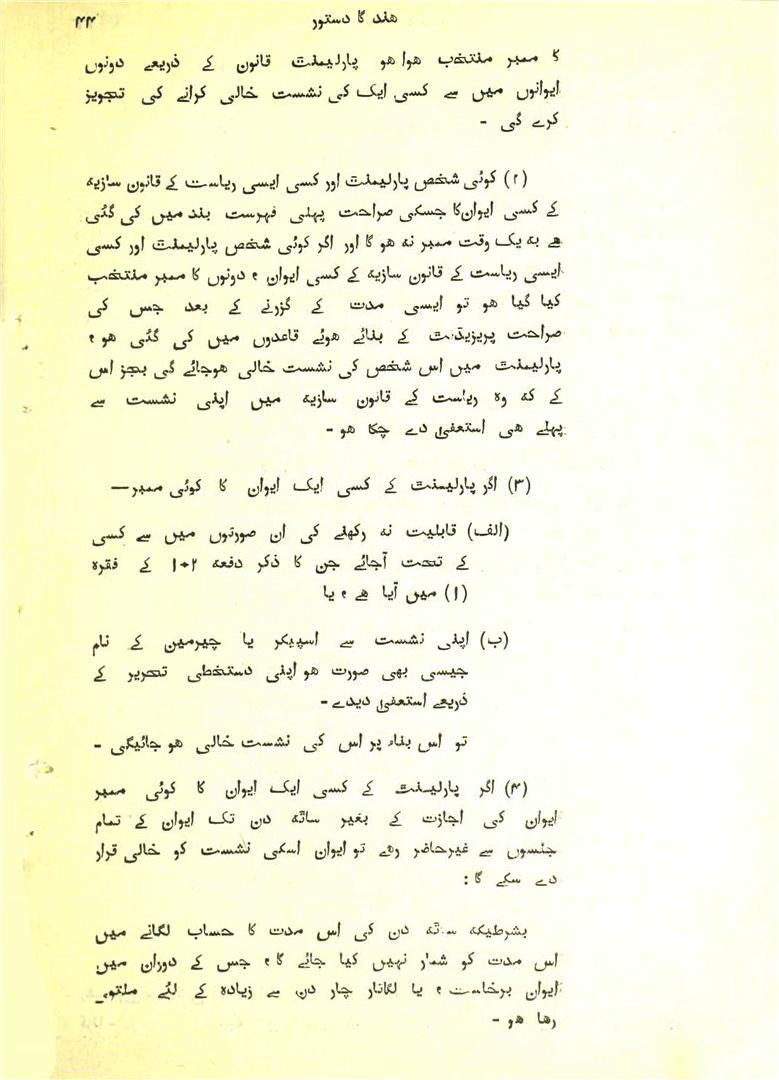 ۴۴ ھند کا دستور
کا ممبر منتخب ھوا ھو پارلیمنٹ قانون کے ذریعے دونوں
ایوانوں میں سے کسی ایک کی نشست خالی کرانے کی تجویز
کرے گی -
(۲) کوئی شخص پارلیمنٹ اور کسی ایسی ریاست کے قانون سازیہ
کے کسی ایوان کا جسکی صراحت پہلی فہرست بند میں کی گئی
ھے بہ یک وقت ممبر نہ ھو گا اور اگر کوئی شخص پارلیمنٹ اور کسی
ایسی ریاست کے قانون سازیہ کے کسی ایوان ، دونوں کا ممبر منتخب
کیا گیا ھو تو ایسی مدت کے گزرنے کے بعد جس کی
صراحت پریزیڈنٹ کے بنائے ھوئے قاعدوں میں کی گئی ھو ،
پارلیمنٹ میں اس شخص کی نشست خالی ھوجائے گی بجز اس
کے کہ وہ ریاست کے قانون سازیہ میں اپنی نشست سے
پہلے ھی استعفیٰ دے چکا ھو -
(۳) اگر پارلیمنٹ کے کسی ایک ایوان کا کوئی ممبر —
(الف) قابلیت نہ رکھنے کی ان صورتوں میں سے کسی
کے تحت آجائے جن کا ذکر دفعہ ۱۰۲ کے فقرہ
(۱) میں آیا ھے ، یا
(ب) اپنی نشست سے اسپیکر یا چیرمین کے نام
جیسی بھی صورت ھو اپنی دستخطی تحریر کے
ذریعے استعفیٰ دیدے -
تو اس بناء پر اس کی نشست خالی ھو جائیگی -
(۴) اگر پارلیمنٹ کے کسی ایک ایوان کا کوئی ممبر
ایوان کی اجازت کے بغیر ساٹھ دن تک ایوان کے تمام
جلسوں سے غیرحاضر رھے تو ایوان اسکی نشست کو خالی قرار
دے سکے گا :
بشرطیکہ ساٹھ دن کی اس مدت کا حساب لگانے میں
اس مدت کو شمار نہیں کیا جائے گا ، جس کے دوران میں
ایوان برخاست ، یا لگاتار چار دن سے زیادہ کے لئے ملتوی
رھا ھو -